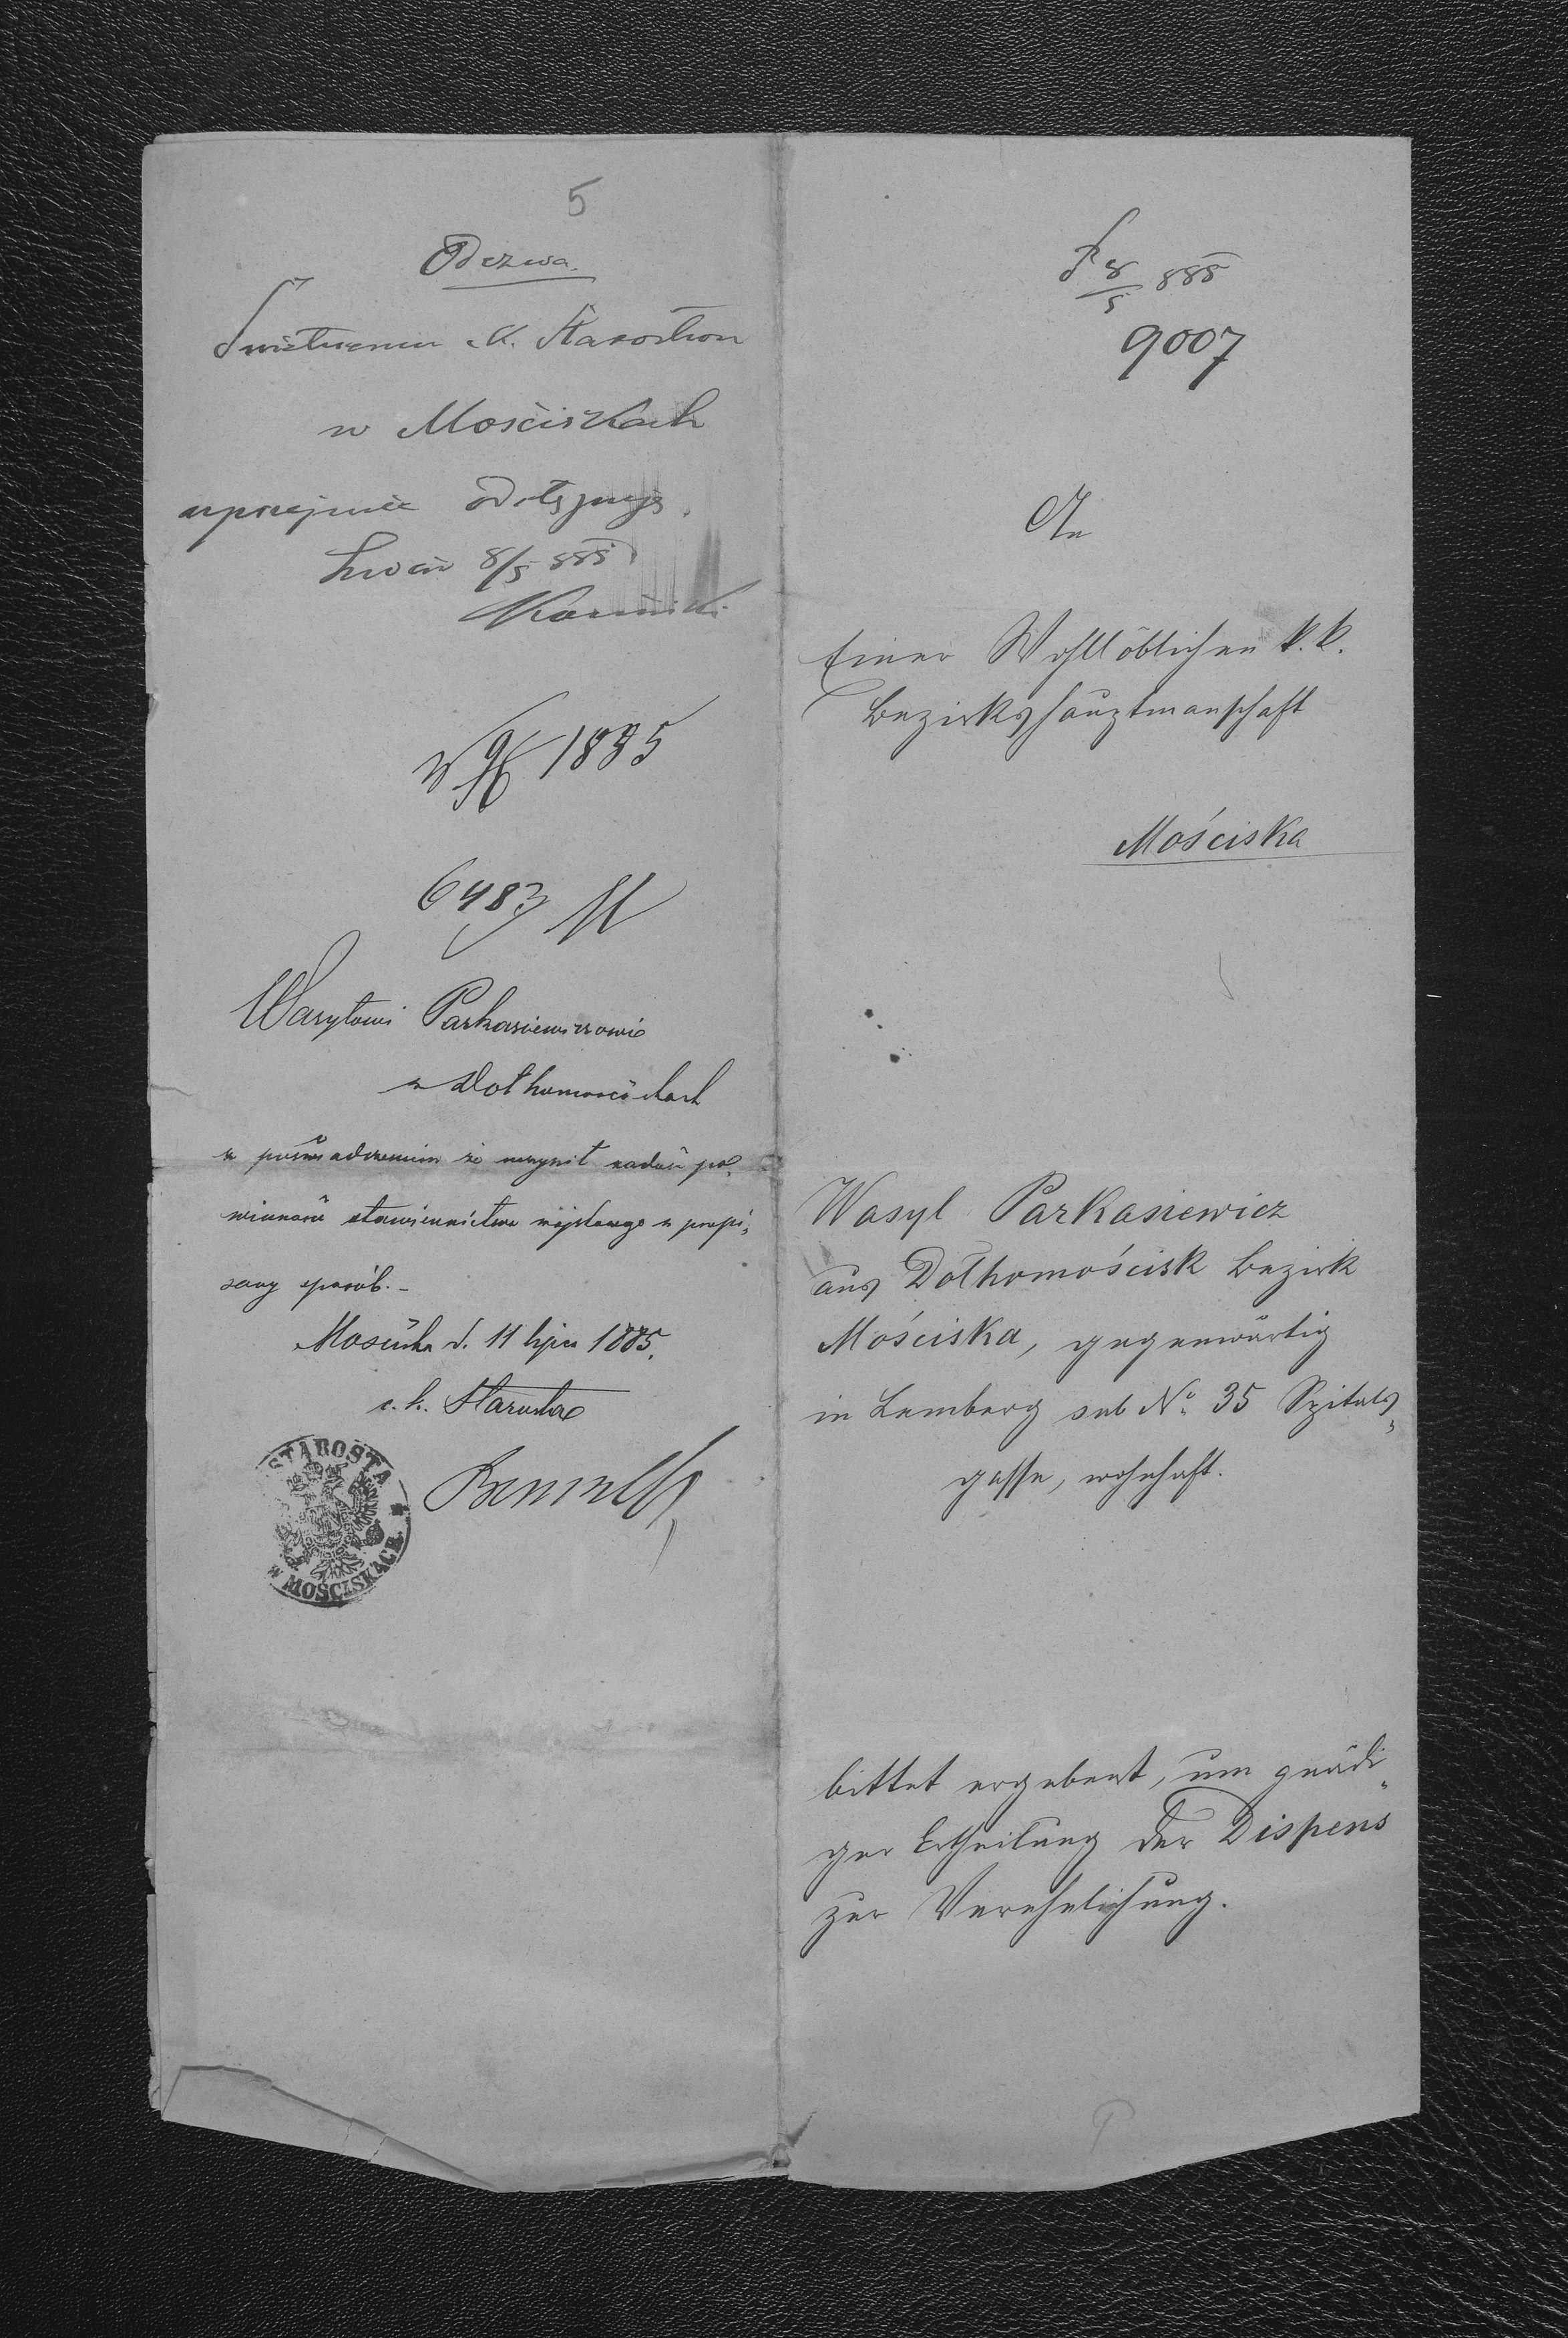 5
Odezwa.
Świetnemu c. k. Starostwu
w Mościskach
uprzejmie odstępuję.
Lwów 8/5 885
1885
6483
Wasylowi Parkasiewiczowi
w Dołhomościskach
z poświadczeniem że uczynił zadość po„
winności stawiennictwa wojskowego w przepi„
sany sposób. –
Mościska d. 11 lipca 1885.
c. k. Starosta
STAROSTA
W MOŚCISKACH
8/5 885
9007
An
Einer Wohllöblichen k. k.
Bezirkshauptmanschaft
Mościska
Wasyl Parkasiewicz
aus Dołhomościsk Bezirk
Mościska, gegenwärtig
in Lemberg sub No 35 Spitals„
gasse, wohnhaft.
bittet ergebenst, um gnädi„
ger Ertheilung der Dispens
zur Verehelichung.